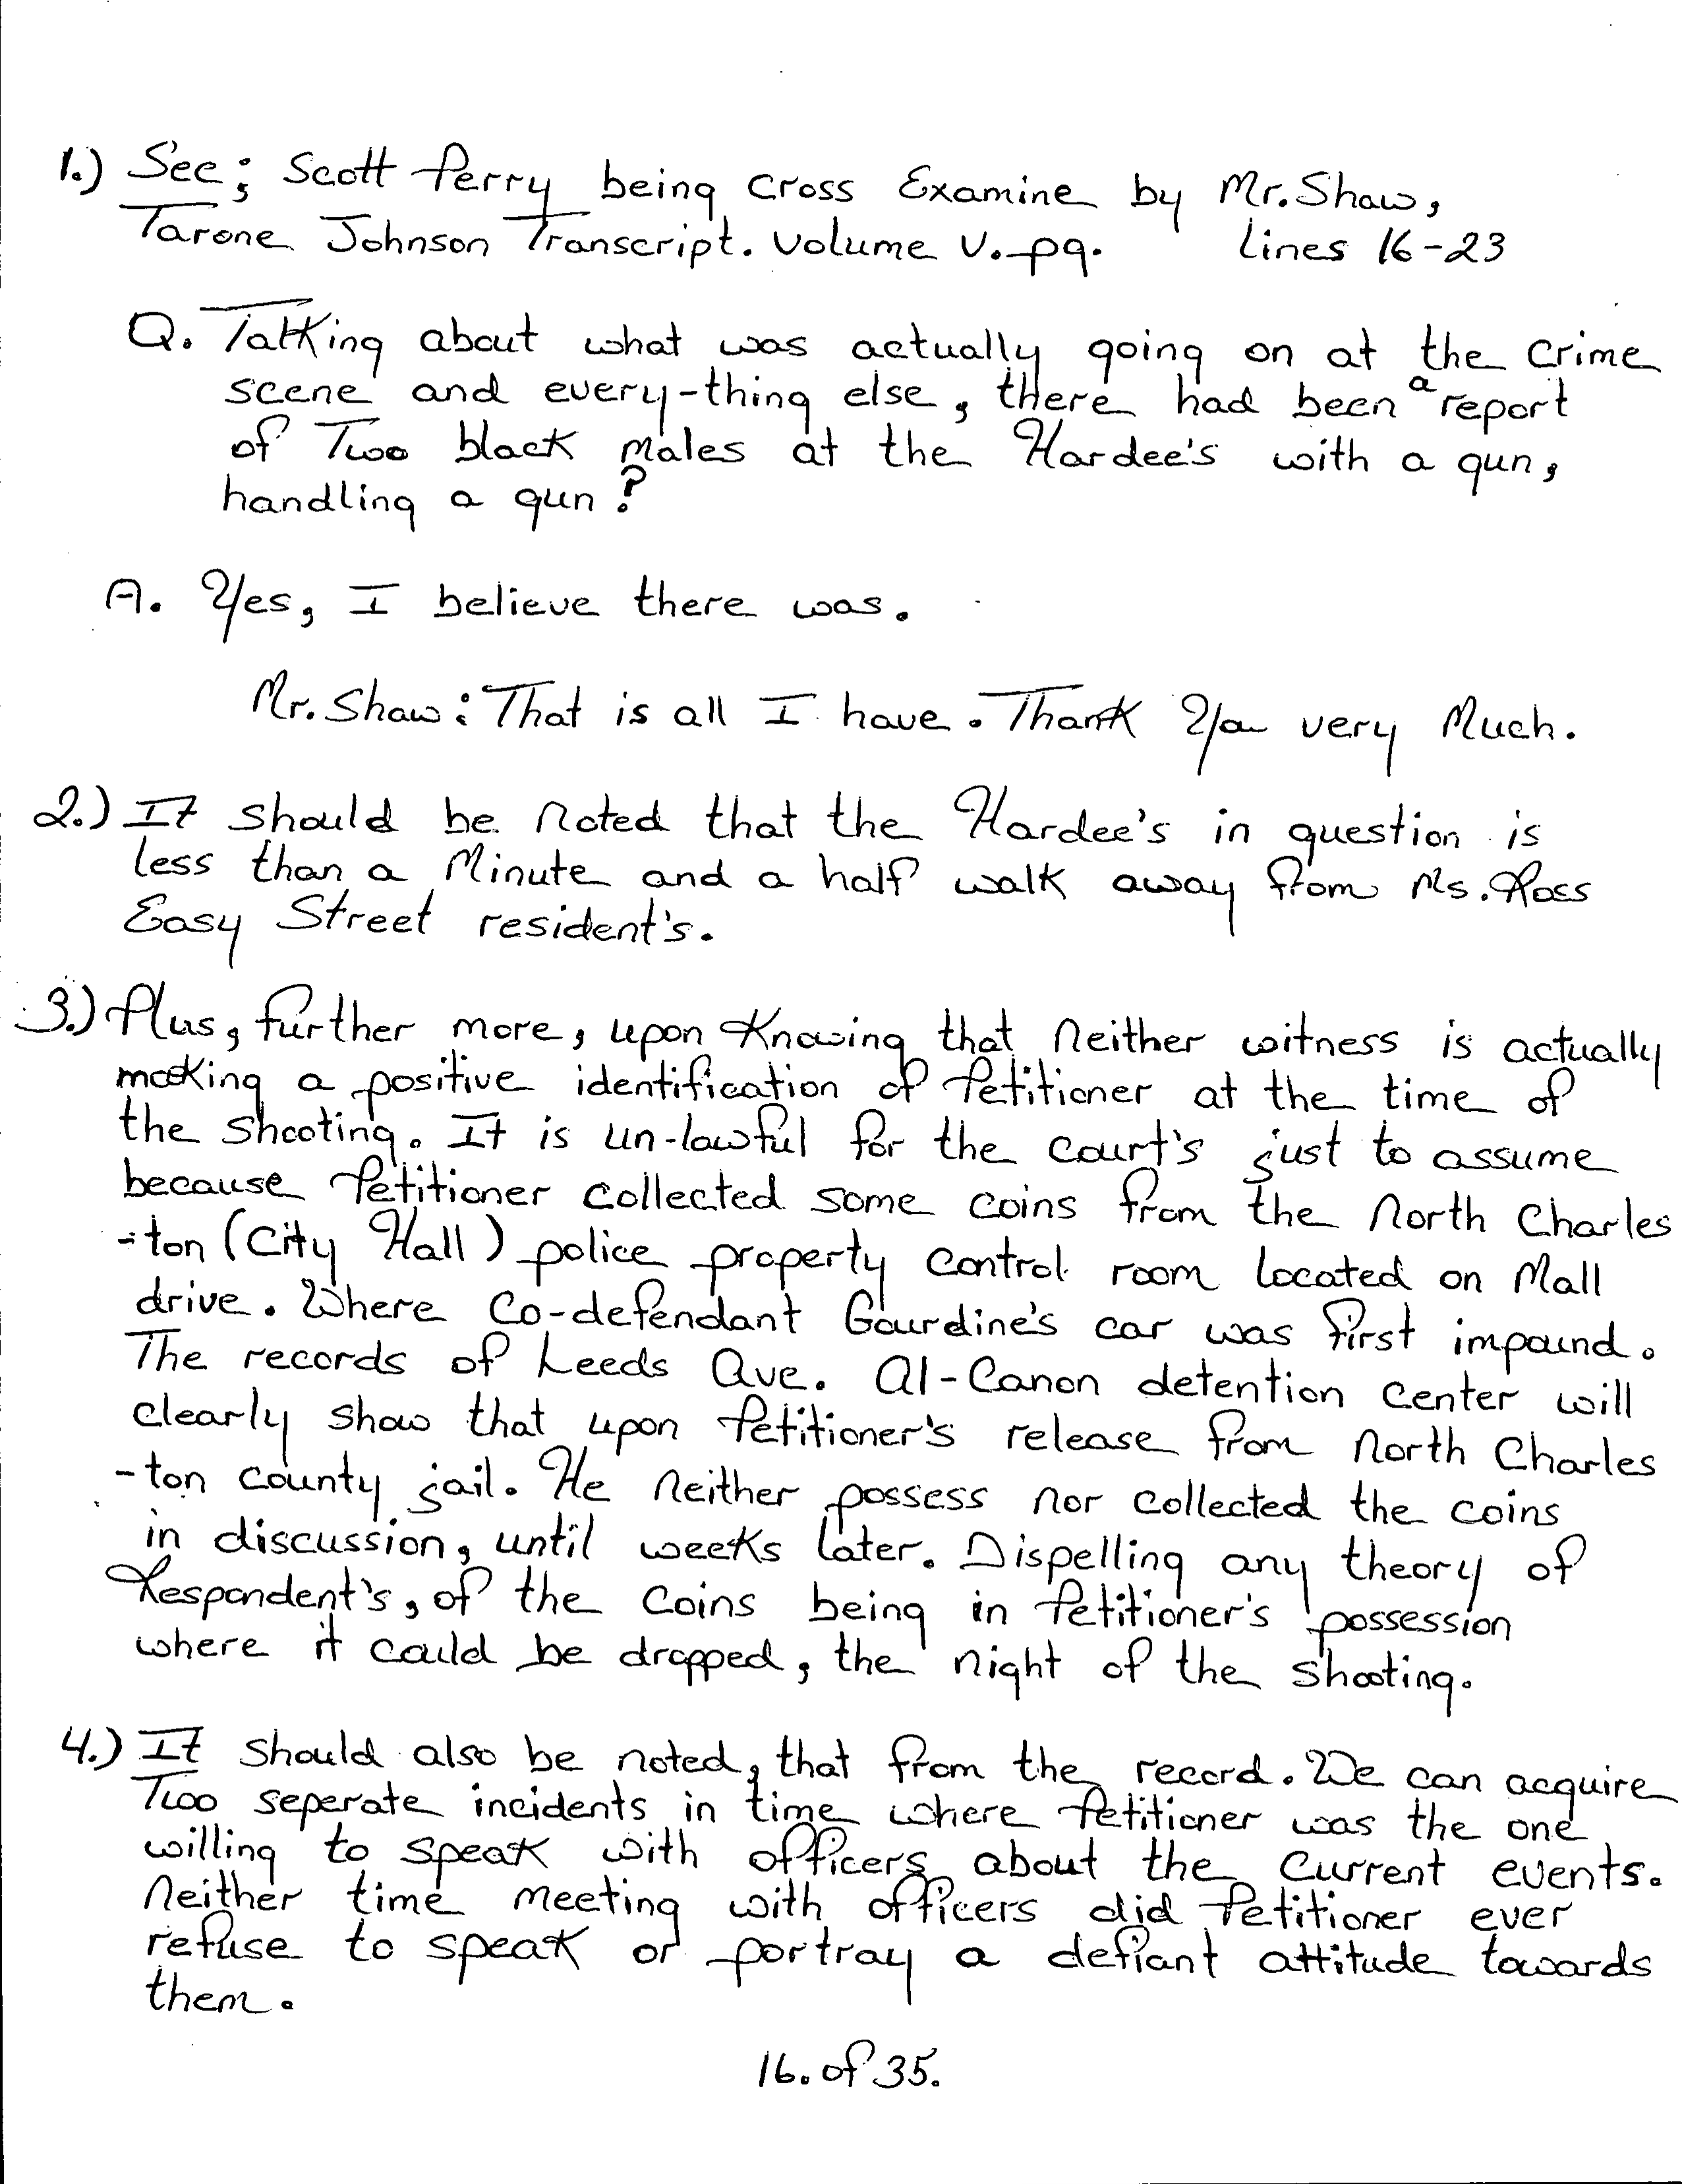 1.) See; Scott Perry being Cross Examine by Mr. Shaw,
Tarone Johnson Transcript. Volume V. pg. Lines 16-23
Q. Talking about what was actually going on at the crime
scene and every-thing else, there had been a report
of Two black males at the Hardee's with a gun,
handling a gun?
A. Yes, I believe there was.
Mr. Shaw: That is all I have. Thank You very Much.
2.) It should be Noted that the Hardee's in question is
less than a Minute and a half walk away from Ms. Ross
Easy Street resident's.
3.) Plus, further more, upon Knowing that Neither witness is actually
making a positive identification of Petitioner at the time of
the Shooting. It is un-lawful for the court's just to assume
because Petitioner collected some coins from the North Charles
-ton (City Hall) police property control room located on Mall
drive. Where Co-defendant Gourdine's car was first impound.
The records of Leeds Ave. Al-Canon detention center will
clearly show that upon Petitioner's release from North Charles
-ton county jail. He Neither possess nor collected the coins
in discussion, until weeks later. Dispelling any theory of
Respondent's, of the coins being in Petitioner's possession
where it could be dropped, the night of the shooting.
4.) It should also be noted, that from the record. We can acquire
Two seperate incidents in time where Petitioner was the one
willing to speak with officers about the current events.
Neither time meeting with officers did Petitioner ever
refuse to speak or portray a defiant attitude towards
them.
16. of 35.